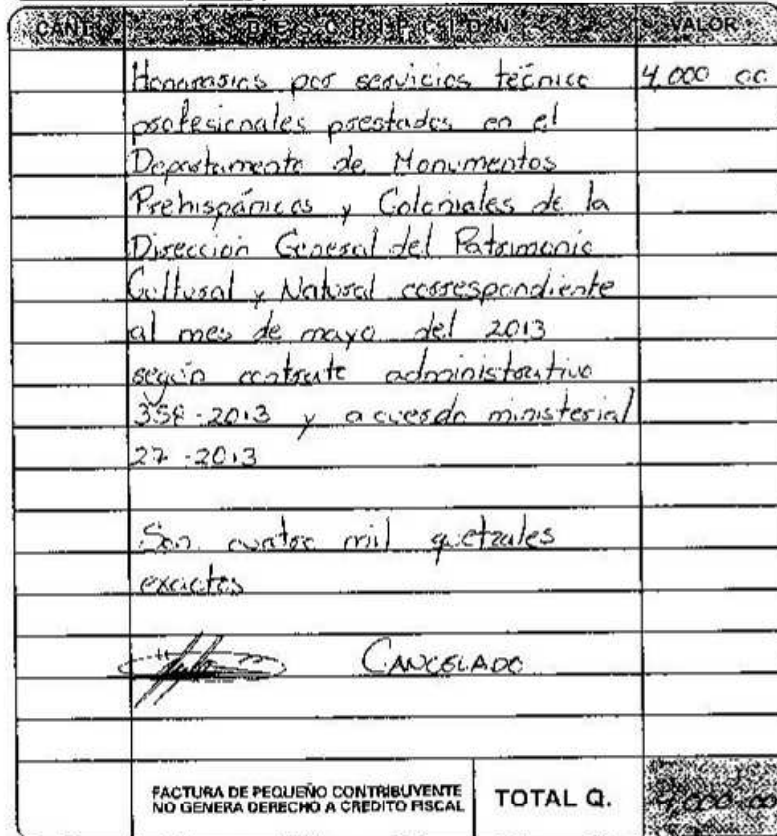 CANT. DESCRIPCION VALOR
Honorarios por servicios técnico 4,000 00
profesionales prestados en el
Departamento de Monumentos
Prehispánicos y Coloniales de la
Dirección General del Patrimonio
Cultural y Natural correspondiente
al mes de mayo del 2013
según contrato administrativo
358-2013 y acuerdo ministerial
27-2013
Son cuatro mil quetzales
exactos
CANCELADO
FACTURA DE PEQUEÑO CONTRIBUYENTE
NO GENERA DERECHO A CREDITO FISCAL
TOTAL Q. 4,000.00